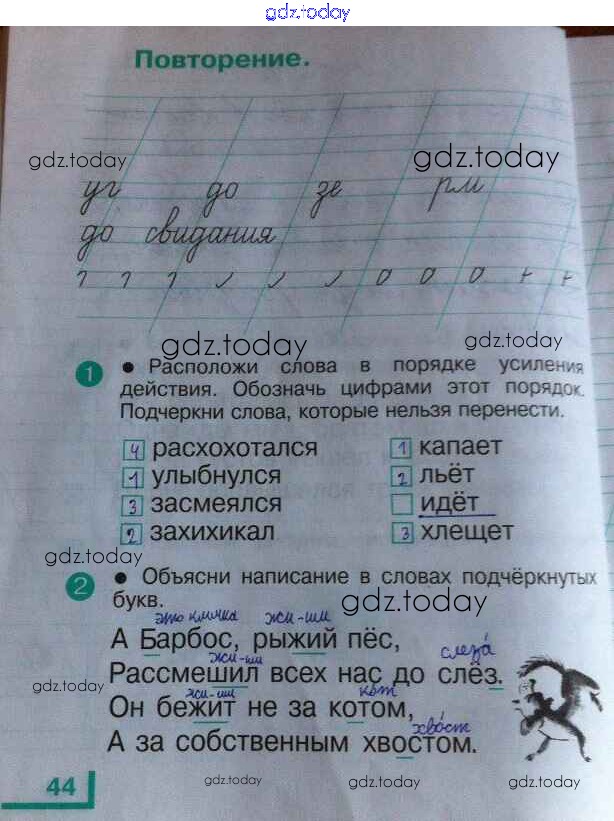 gdz.today
Повторение.
gdz.today gdz.today
уг до зе рм
до свидания
gdz.today
1 • Расположи слова в порядке усиления
действия. Обозначь цифрами этот порядок.
Подчеркни слова, которые нельзя перенести.
4 расхохотался 1 капает
1 улыбнулся 2 льёт
3 засмеялся идёт
2 захихикал 3 хлещет
gdz.today
2 • Объясни написание в словах подчёркнутых
букв.
gdz.today
это кличка жи-ши
А Барбос, рыжий пёс,
жи-ши слеза
Рассмешил всех нас до слёз.
gdz.today
жи-ши кот
Он бежит не за котом,
хвост
А за собственным хвостом.
44 gdz.today gdz.today gdz.today